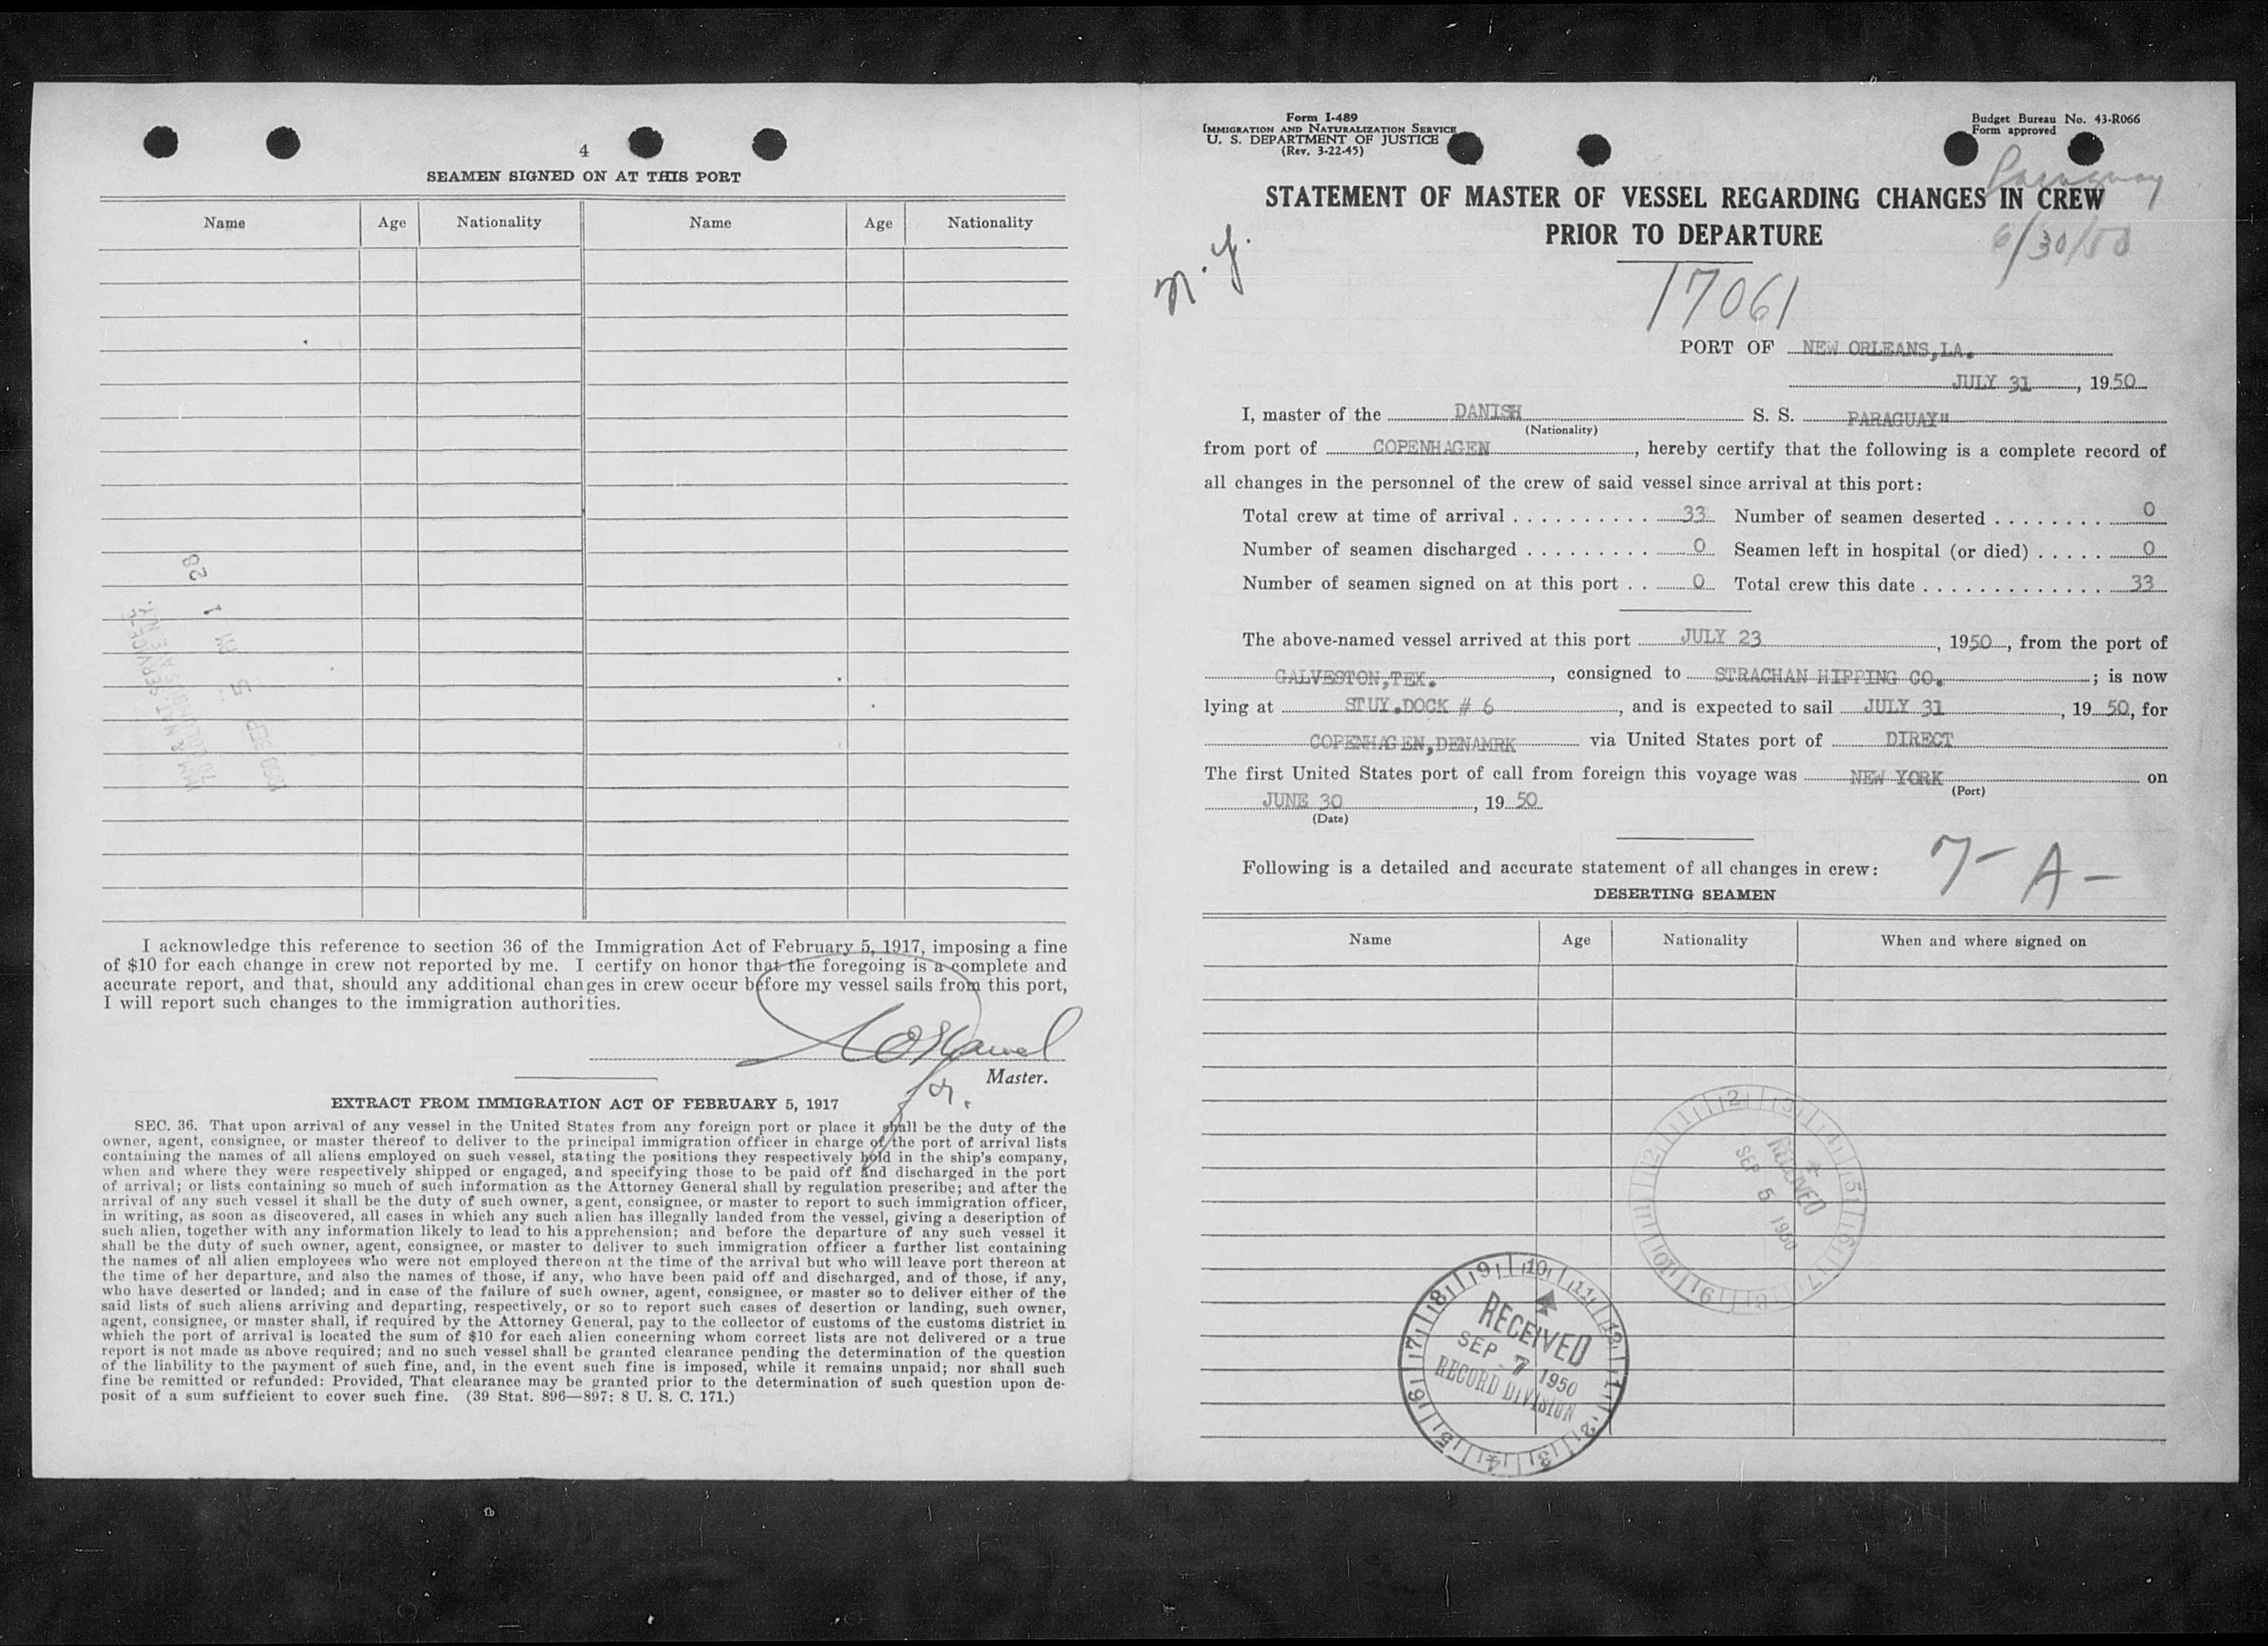 4
SEAMEN SIGNED ON AT THIS PORT
Name Age Nationality Name Age Nationality
28
1
PM
5
SEP
1950
IMM & NAT SERVICE
70 COLUMBUS AVE N.Y.
I acknowledge this reference to section 36 of the Immigration Act of February 5, 1917, imposing a fine
of $10 for each change in crew not reported by me. I certify on honor that the foregoing is a complete and
accurate report, and that, should any additional changes in crew occur before my vessel sails from this port,
I will report such changes to the immigration authorities.
for.
Master.
EXTRACT FROM IMMIGRATION ACT OF FEBRUARY 5, 1917
SEC. 36. That upon arrival of any vessel in the United States from any foreign port or place it shall be the duty of the
owner, agent, consignee, or master thereof to deliver to the principal immigration officer in charge of the port of arrival lists
containing the names of all aliens employed on such vessel, stating the positions they respectively hold in the ship's company,
when and where they were respectively shipped or engaged, and specifying those to be paid off and discharged in the port
of arrival; or lists containing so much of such information as the Attorney General shall by regulation prescribe; and after the
arrival of any such vessel it shall be the duty of such owner, agent, consignee, or master to report to such immigration officer,
in writing, as soon as discovered, all cases in which any such alien has illegally landed from the vessel, giving a description of
such alien, together with any information likely to lead to his apprehension; and before the departure of any such vessel it
shall be the duty of such owner, agent, consignee, or master to deliver to such immigration officer a further list containing
the names of all alien employees who were not employed thereon at the time of the arrival but who will leave port thereon at
the time of her departure, and also the names of those, if any, who have been paid off and discharged, and of those, if any,
who have deserted or landed; and in case of the failure of such owner, agent, consignee, or master so to deliver either of the
said lists of such aliens arriving and departing, respectively, or so to report such cases of desertion or landing, such owner,
agent, consignee, or master shall, if required by the Attorney General, pay to the collector of customs of the customs district in
which the port of arrival is located the sum of $10 for each alien concerning whom correct lists are not delivered or a true
report is not made as above required; and no such vessel shall be granted clearance pending the determination of the question
of the liability to the payment of such fine, and, in the event such fine is imposed, while it remains unpaid; nor shall such
fine be remitted or refunded: Provided, That clearance may be granted prior to the determination of such question upon de-
posit of a sum sufficient to cover such fine. (39 Stat. 896—897: 8 U. S. C. 171.)
Form I-489
IMMIGRATION AND NATURALIZATION SERVICE
U. S. DEPARTMENT OF JUSTICE
(Rev. 3-22-45)
Budget Bureau No. 43-R066
Form approved
Paraguay
STATEMENT OF MASTER OF VESSEL REGARDING CHANGES IN CREW
PRIOR TO DEPARTURE
6/30/50
N.Y.
17061
PORT OF NEW ORLEANS,LA.
JULY 31, 1950
I, master of the DANISH S. S. PARAGUAY"
(Nationality)
from port of COPENHAGEN, hereby certify that the following is a complete record of
all changes in the personnel of the crew of said vessel since arrival at this port:
Total crew at time of arrival . . . . . . . . . . 33 Number of seamen deserted . . . . . . . . 0
Number of seamen discharged . . . . . . . . . 0 Seamen left in hospital (or died) . . . . . 0
Number of seamen signed on at this port . . 0 Total crew this date . . . . . . . . . . . . . 33
The above-named vessel arrived at this port JULY 23, 1950, from the port of
GALVESTON,TEX., consigned to STRACHAN HIPPING CO.; is now
lying at STUY.DOCK # 6, and is expected to sail JULY 31, 1950, for
COPENHAGEN,DENAMRK via United States port of DIRECT
The first United States port of call from foreign this voyage was NEW YORK on
(Port)
JUNE 30, 1950
(Date)
Following is a detailed and accurate statement of all changes in crew:
7- A-
DESERTING SEAMEN
Name Age Nationality When and where signed on
RECEIVED
SEP 5 1950
9 10 11 12 1 2 3 4 5 6 7 8
RECEIVED
SEP 7 1950
RECORD DIVISION